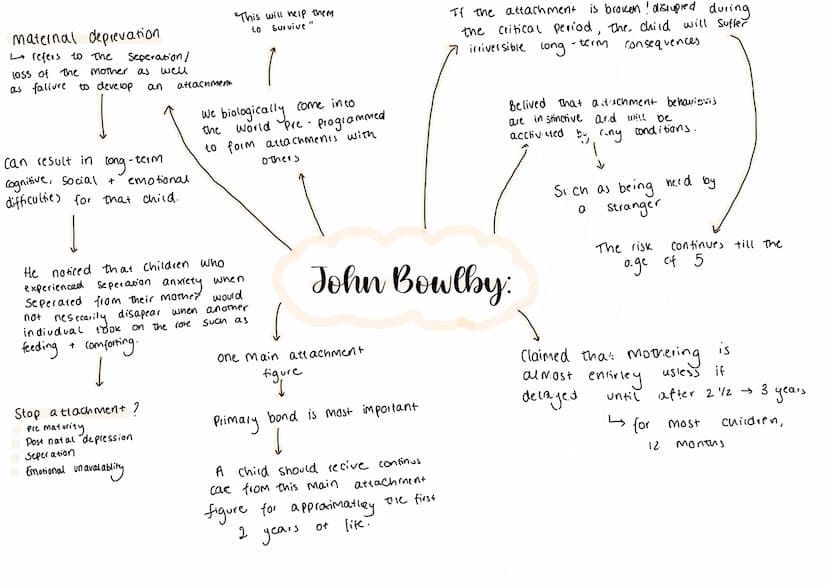 John Bowlby:
maternal deprevation
↳ refers to the seperation/
loss of the mother as well
as failure to develop an attachment
can result in long-term
cognitive, social + emotional
difficulties for that child.
He noticed that children who
experienced seperation anxiety when
seperated from their mother would
not nescecarily disapear when another
indivdual took on the role such as
feeding + comforting.
Stop attachment?
Pre maturity
Post natal depression
Seperation
Emotional unavalablity
We biologically come into
the world pre-programmed
to form attachments with
others
"This will help them
to survive"
one main attachment
figure
Primary bond is most important
A child should recive continus
care from this main attachment
figure for approximatley the first
2 years of life.
If the attachment is broken/disrupted during
the critical period, the child will suffer
irriversible long-term consequences
The risk continues till the
age of 5
Belived that attachment behaviours
are instinctive and will be
activated by any conditions.
Such as being held by
a stranger
Claimed that mothering is
almost entirley usless if
delayed until after 2 1/2 → 3 years
↳ for most children,
12 months